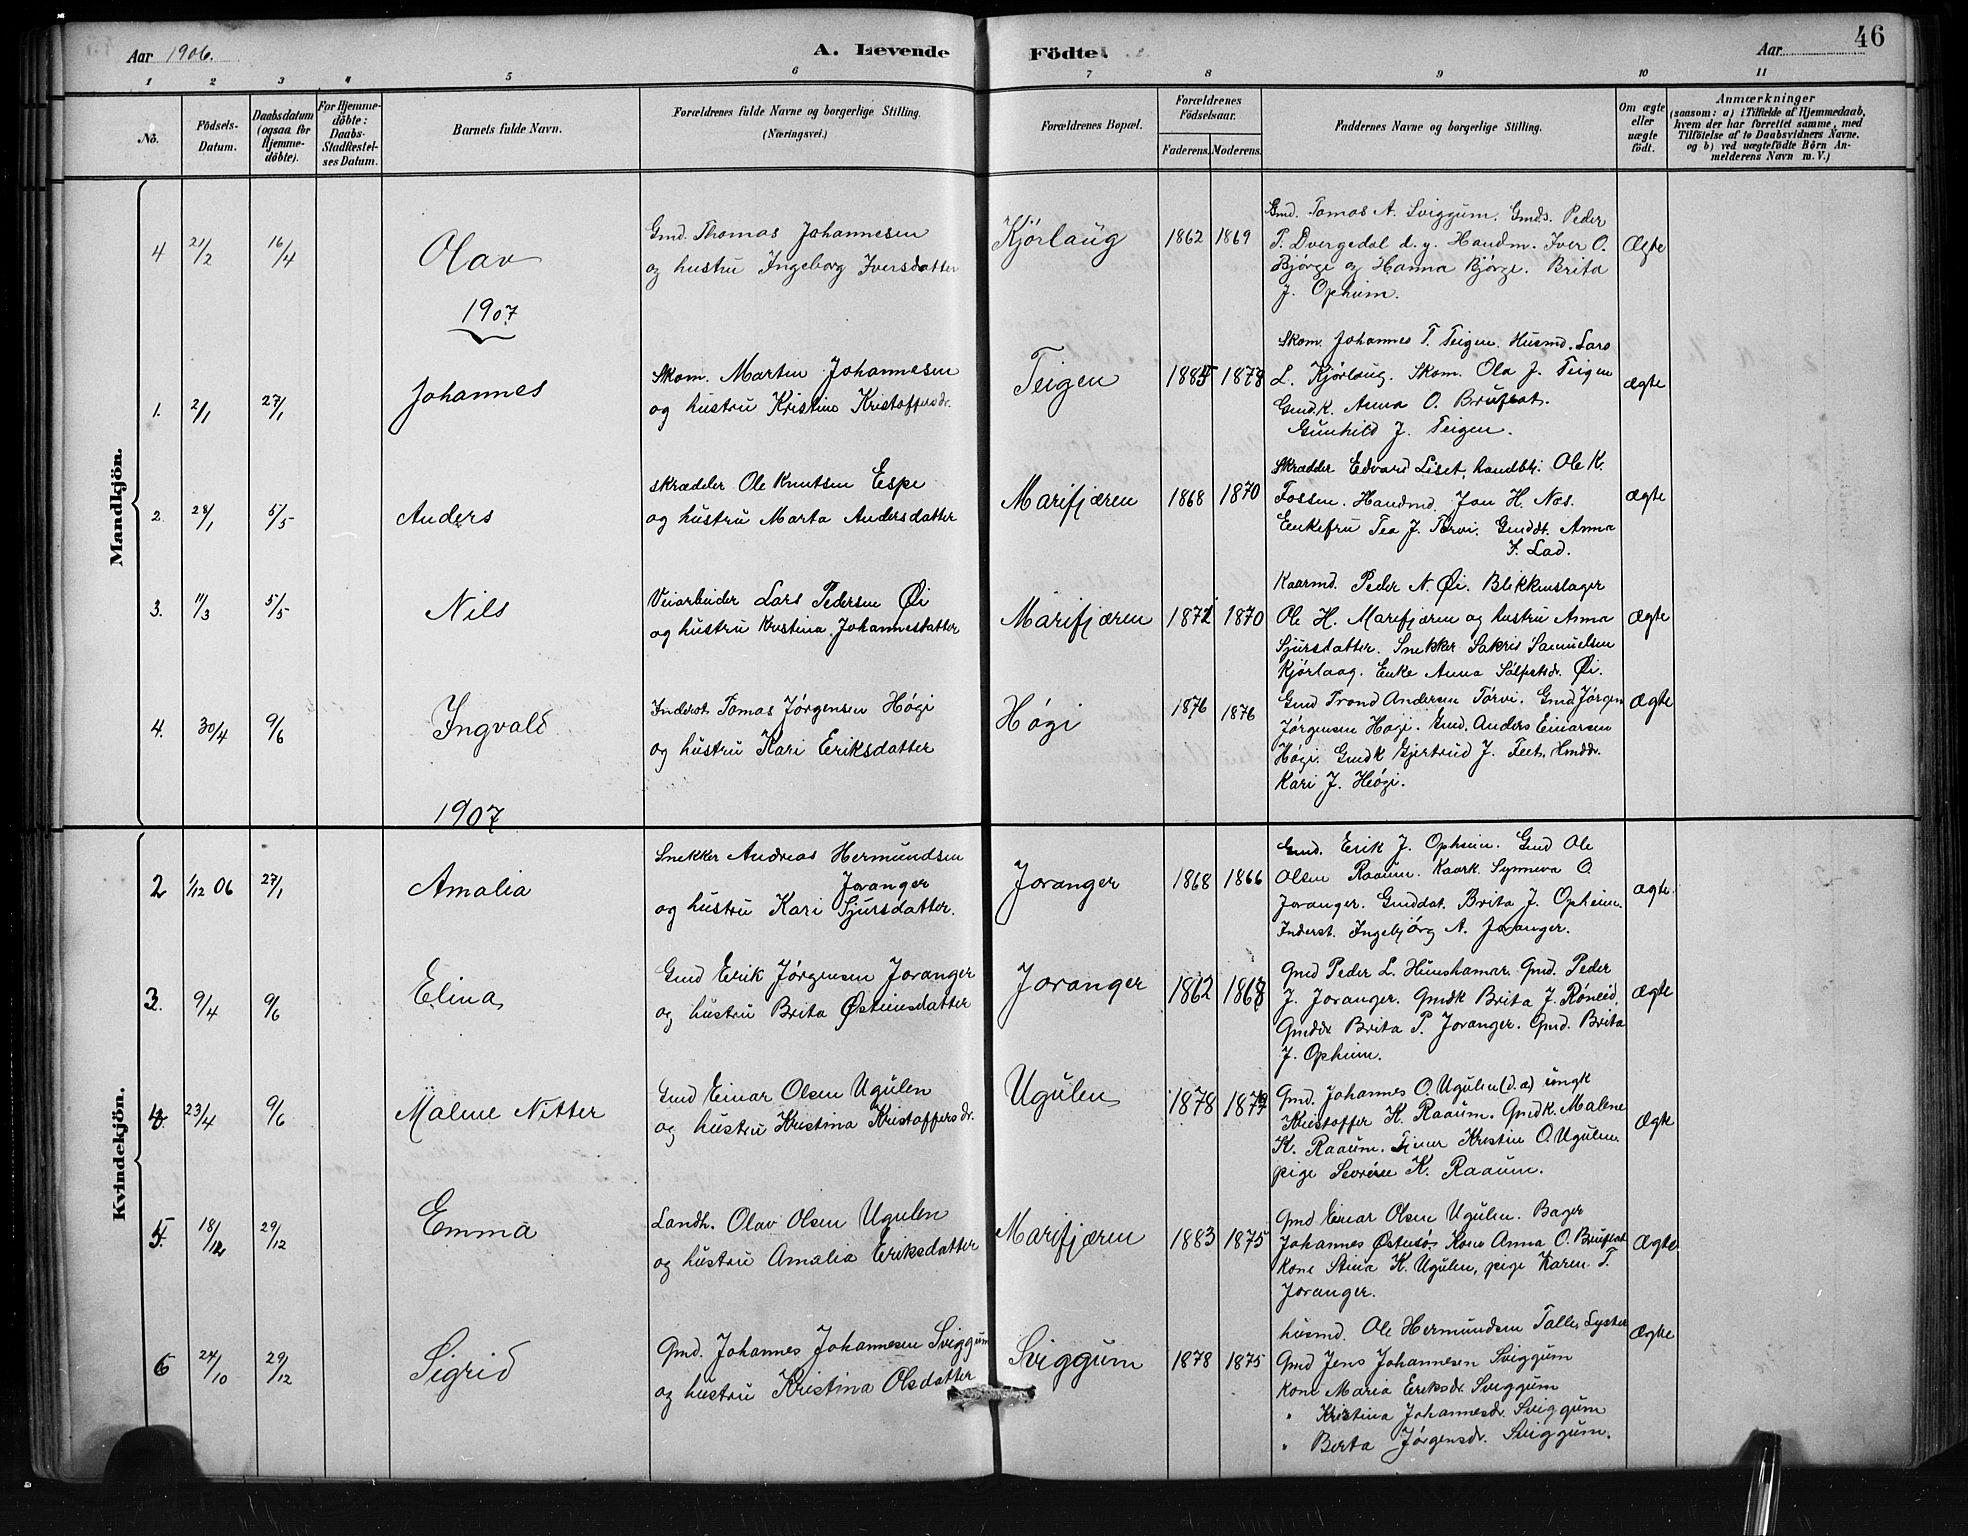 Aar 1906. A. Levende Födte. Aar 46
1 2 3 4 5 6 7 8 9 10 11
No.
Födsels-Datum.
Daabsdatum (ogsaa for Hjemme-döbte).
For Hjemme-döbte: Daabs-Stadfæstel-ses Datum.
Barnets fulde Navn.
Forældrenes fulde Navne og borgerlige Stilling.
(Næringsvei.)
Forældrenes Bopæl.
Forældrenes Födselsaar.
Faderens. Moderens.
Faddernes Navne og borgerlige Stilling.
Om ægte eller uægte födt.
Anmærkninger
(saasom: a) i Tilfælde af Hjemmedaab,
hvem der har forrettet samme, med
Tilföielse af to Daabsvidners Navne,
og b) ved uægtefödte Börn An-
melderens Navn m. V.)
Mandkjön.
4 21/2 16/4 Olav
Gmd. Thomas Johannesen
og hustru Ingeborg Iversdatter
Kjørlaug 1862 1869
Gmd. Tomas A. Sviggum. Gmds. Peder
T. Dvergedal d. y. Handm. Iver O.
Bjørge og Hanna Bjørge. Brita
J. Opheim.
Ægte
1907
1. 2/1 27/1 Johannes
Skom. Martin Johannesen
og hustru Kristine Kristoffersdr.
Teigen 1878
Skom. Johannes T. Teigen. Husmd. Lars
L. Kjørlaug. Skom. Ola J. Teigen
Gmdk. Anna O. Bruflat.
Gunhild J. Teigen.
ægte
2. 28/1 5/5 Anders
skrædder Ole Knutsen Espe
og hustru Marta Andersdatter
Marifjæren 1868 1870
Skrædder Edvard Liset, handbtj. Ole K.
Fossen. Handmd. Jan H. Nas.
Enkefru Tea J. Tørvi. Gmddt. Anna
J. Lad.
ægte
3. 11/3 5/5 Nils
Veiarbeider Lars Pedersen Øi
og hustru Kristina Johannesdatter
Marifjæren 1870
Kaarmd. Peder N. Øi. Blikkenslager
Ole H. Marifjæren og hustru Anna
Sjursdatter. Snekker Sakris Samuelsen
Kjørlaag. Enke Anna Sølfestdr. Øi.
ægte
4. 30/4 9/6 Ingvald
Inderst Tomas Jørgensen Høgi
og hustru Kari Eriksdatter
Høgi 1876 1876
Gmd Trond Andersen Tørvi. Gmd Jørgen
Jørgensen Høgi. Gmd. Anders Einarsen
Høgi. Gmdk Gjertrud J. Feet, Hmddr.
Kari J. Høgi.
Ægte
1907
Kvindekjön.
2 1/12 06 27/1 Amalia
Snekker Andreas Hermundsen
Joranger
og hustru Kari Sjursdatter.
Joranger 1868 1866
Gmd. Erik J. Opheim. Gmd Ole
Olsen Raaum. Kaark. Synneva O.
Joranger. Gmddat. Brita J. Opheim.
Inderst. Ingebjørg A. Joranger.
ægte.
3. 9/4 9/6 Elina
Gmd Erik Jørgensen Joranger
og hustru Brita Østeinsdatter
Joranger 1862 1868
Gmd Peder L. Hunshamar. Gmd. Peder
J. Joranger. Gmdk Brita J. Røneid,
Gmddr Brita P. Joranger. Gmd. Brita
J. Opheim.
Ægte
4. 23/4 9/6 Malene Nitter
Gmd Einar Olsen Ugulen
og hustru Kristina Kristoffersdr.
Ugulen 1878
Gmd. Johannes O. Ugulen (d.æ) ungk
Kristoffer K. Raaum. Gmdk. Malene
K. Raaum. Tjener Kristin O. Ugulen.
pige Severine K. Raaum.
Ægte
5. 18/12 29/12 Emma
Landh. Olav Olsen Ugulen
og hustru Amalia Eriksdatter
Marifjæren 1883 1875
Gmd Einar Olsen Ugulen. Bager
Johannes Østensø. Kone Anna O. Bruflat
kone Stina K. Ugulen, pige Karen T.
Joranger.
Ægte.
6 24/10 29/12 Sigrid
Gmd. Johannes Johannesen Sviggum
og hustru Kristina Olsdatter
Sviggum 1878 1875
husmd. Ole Hermundsen Talle, Lyster
Gmd Jens Johannesen Sviggum
kone Maria Eriksdr. Sviggum
" Kristina Johannesdr. Sviggum
" Berta Jørgensdr. Sviggum.
Ægte